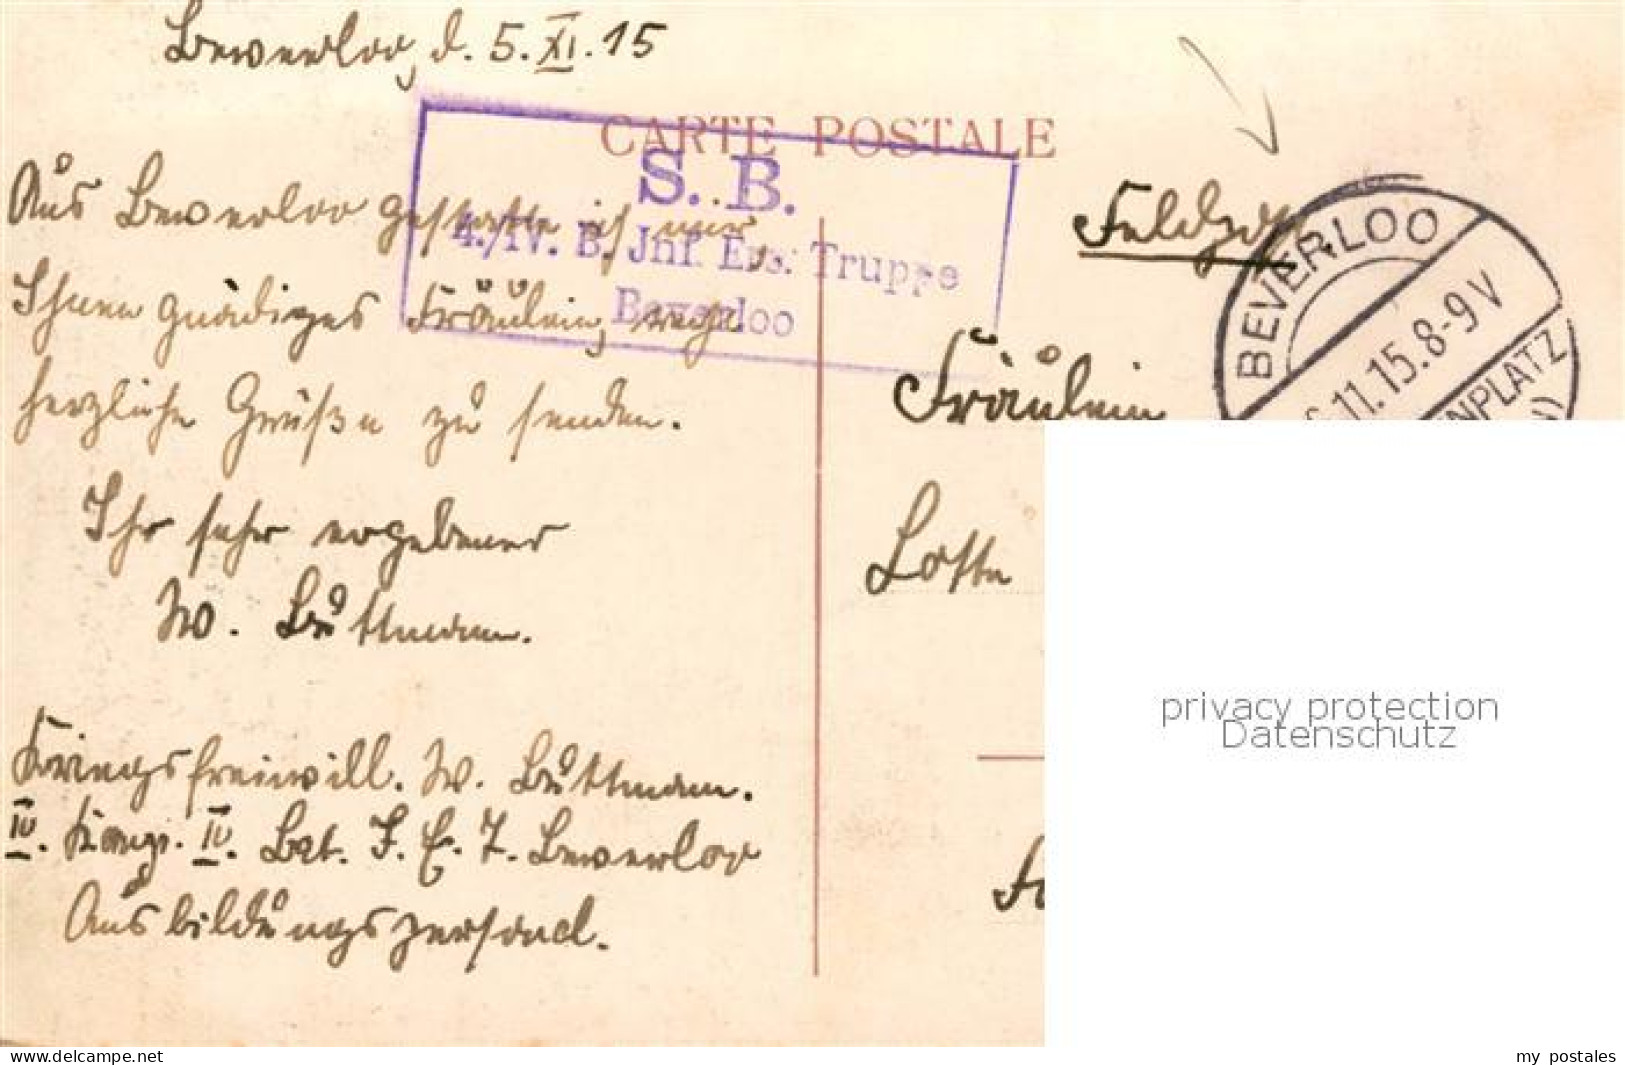 Beverloo, d. 5. XI. 15
CARTE POSTALE
S. B.
4./IV. B. Jnf. Ers. Truppe
Beverloo
Aus Beverloo gestatte ich mir,
Ihnen gnädiges Fräulein, recht
herzliche Grüße zu senden.
Ihr sehr ergebener
W. Buttmann.
Kriegsfreiwill. W. Buttmann.
IV. Komp. IV. Bat. I. E. T. Beverloo
Ausbildungspersonal.
Feldpost.
BEVERLOO
11.15.8-9V
NPLATZ
Fräulein
Lotte
privacy protection
Datenschutz
www.delcampe.net
my postales